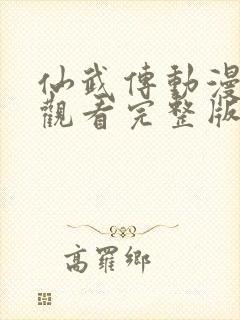 仙武傳動漫
觀看完整版
高羅鄉